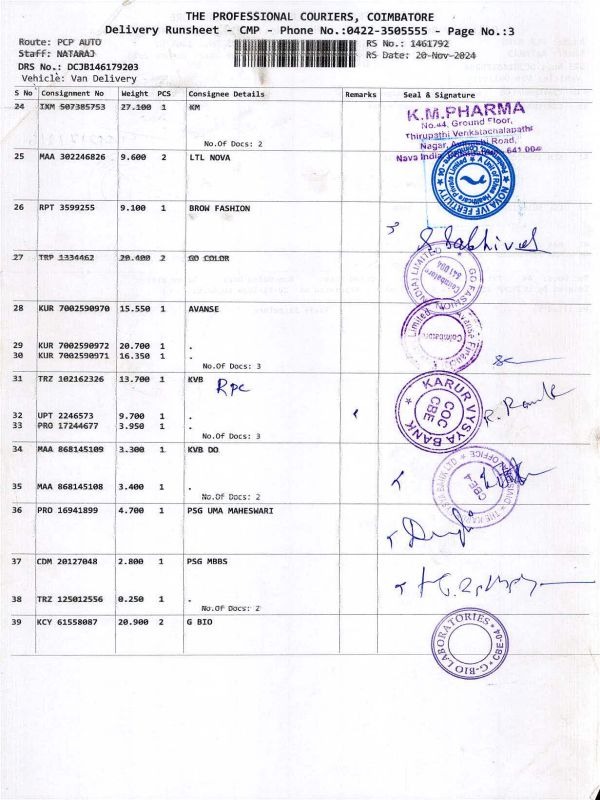 THE PROFESSIONAL COURIERS, COIMBATORE
Delivery Runsheet - CMP - Phone No.:0422-3505555 - Page No.:3
Route: PCP AUTO
RS No.: 1461792
Staff: NATARAJ
RS Date: 20-Nov-2024
DRS No.: DCJB146179203
Vehicle: Van Delivery
S No Consignment No Weight PCS Consignee Details Remarks Seal & Signature
24 IXM 507385753 27.100 1 KM
No.Of Docs: 2
K.M.PHARMA
No.44, Ground Floor,
Thirupathi Venkatachalapathi
Nagar, Avinashi Road,
Nava India, 641 004
25 MAA 302246826 9.600 2 LTL NOVA
NOVA IVF FERTILITY
26 RPT 3599255 9.100 1 BROW FASHION
27 TRP 1334462 20.400 2 GO COLOR
GO FASHION (INDIA) LIMITED
Coimbatore
641 004
28 KUR 7002590970 15.550 1 AVANSE
29 KUR 7002590972 20.700 1 .
30 KUR 7002590971 16.350 1 .
No.Of Docs: 3
Avanse Limited
Coimbatore
31 TRZ 102162326 13.700 1 KVB
Rpc
32 UPT 2246573 9.700 1 .
33 PRO 17244677 3.950 1 .
No.Of Docs: 3
KARUR VYSYA BANK
COC
CBE
34 MAA 868145109 3.300 1 KVB DO
35 MAA 868145108 3.400 1 .
No.Of Docs: 2
36 PRO 16941899 4.700 1 PSG UMA MAHESWARI
37 CDM 20127048 2.800 1 PSG MBBS
38 TRZ 125012556 0.250 1 .
No.Of Docs: 2
39 KCY 61558087 20.900 2 G BIO
G-BIO LABORATORIES
CBE-04